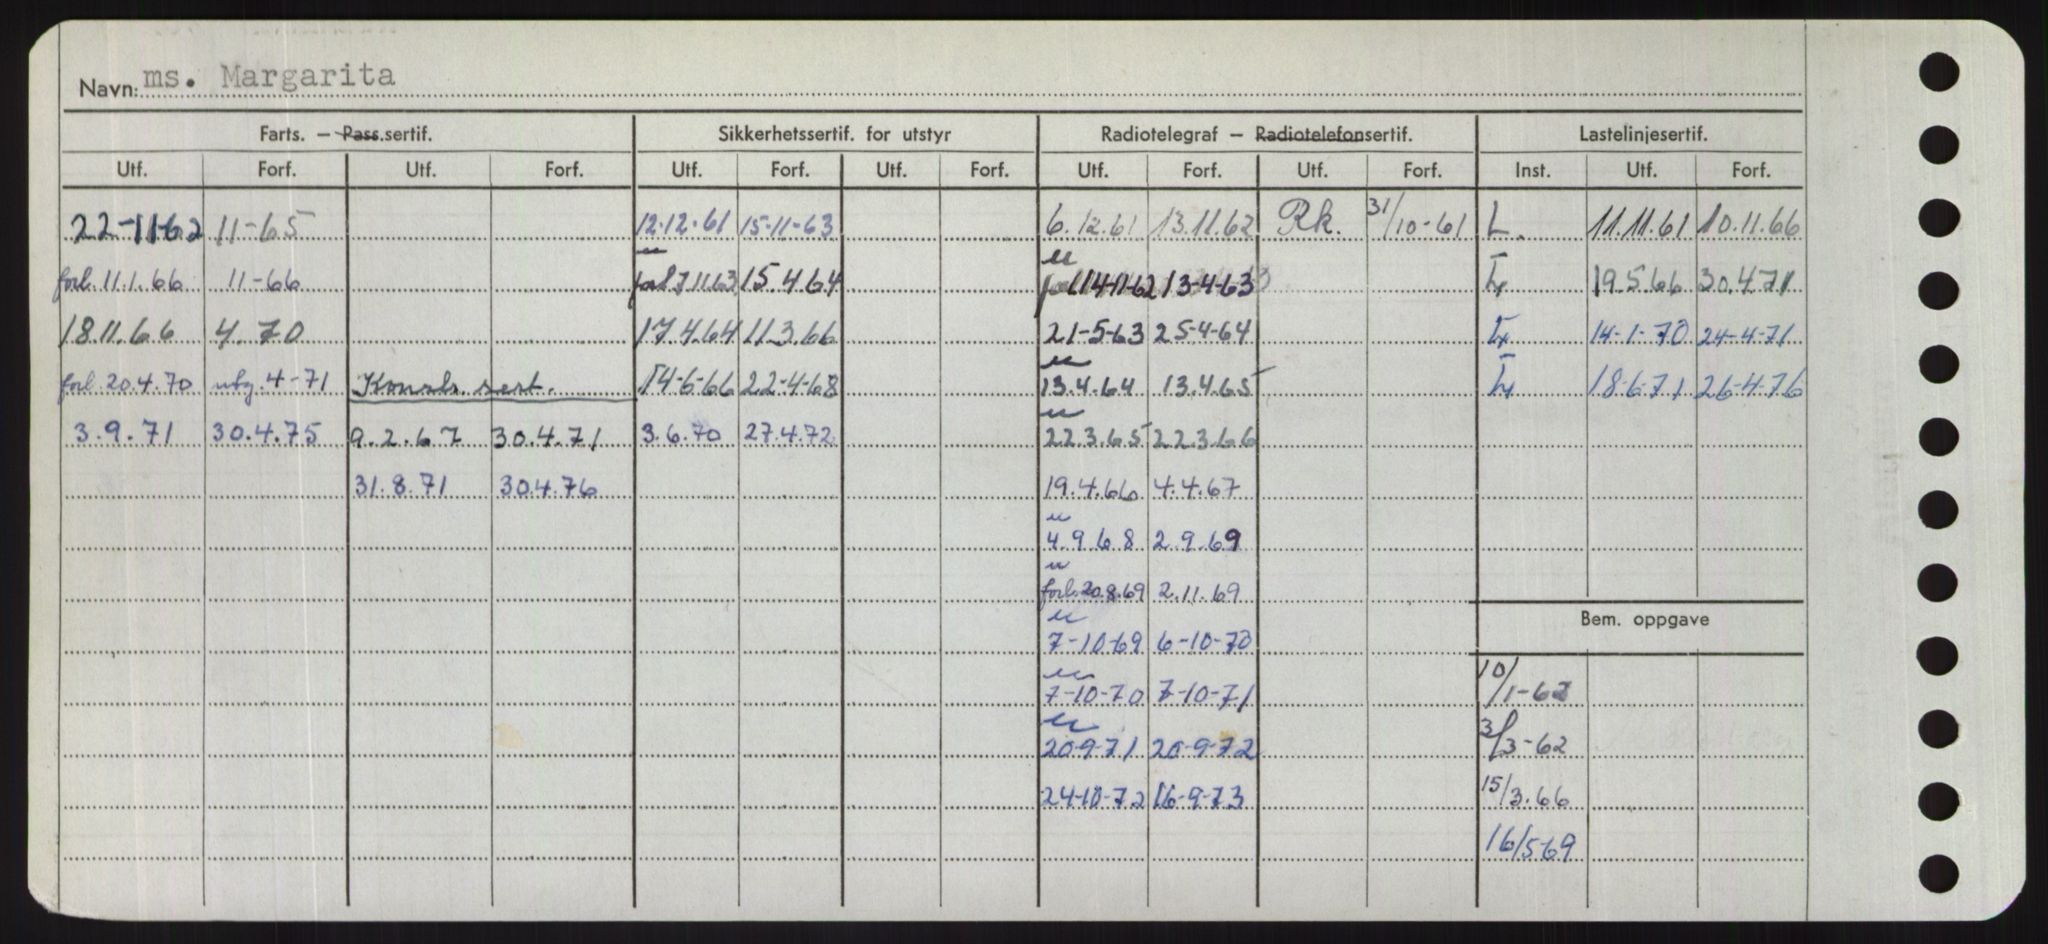 Navn: ms. Margarita
Farts. — Pass.sertif. Sikkerhetssertif. for utstyr Radiotelegraf — Radiotelefonsertif. Lastelinjesertif.
Utf. Forf. Utf. Forf. Utf. Forf. Utf. Forf. Utf. Forf. Utf. Forf. Inst. Utf. Forf.
22-11-62 11-65 12.12.61 15-11-63 6.12.61 13.11.62 Rk. 31/10-61 L. 11.11.61 10.11.66
forl. 11.1.66 11-66 forl 7.11.63 15.4.64 forl 14-11-62 13-4-63 19.5.66 30.4.71
18.11.66 4.70 17.4.64 11.3.66 21-5-63 25-4-64 14-1-70 24-4-71
forl. 20.4.70 utg. 4-71 Konstr. sert. 14-6-66 22-4-68 13.4.64 13.4.65 18.6.71 26.4.76
3.9.71 30.4.75 9.2.67 30.4.71 3.6.70 27.4.72 22.3.65 22.3.66
31.8.71 30.4.76 19.4.66 4.4.67
4.9.68 2.9.69
forl. 20.8.69 2.11.69
Bem. oppgave
7-10-69 6-10-70
7-10-70 7-10-71 10/1-62
20-9-71 20-9-72 3/3-62
24-10-72 16-9-73 15/3.66
16/5-69